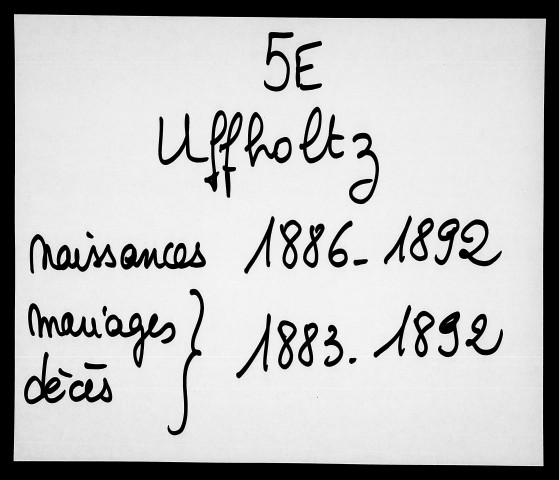 5E
Uffholtz
naissances 1886-1892
mariages } 1883-1892
décès